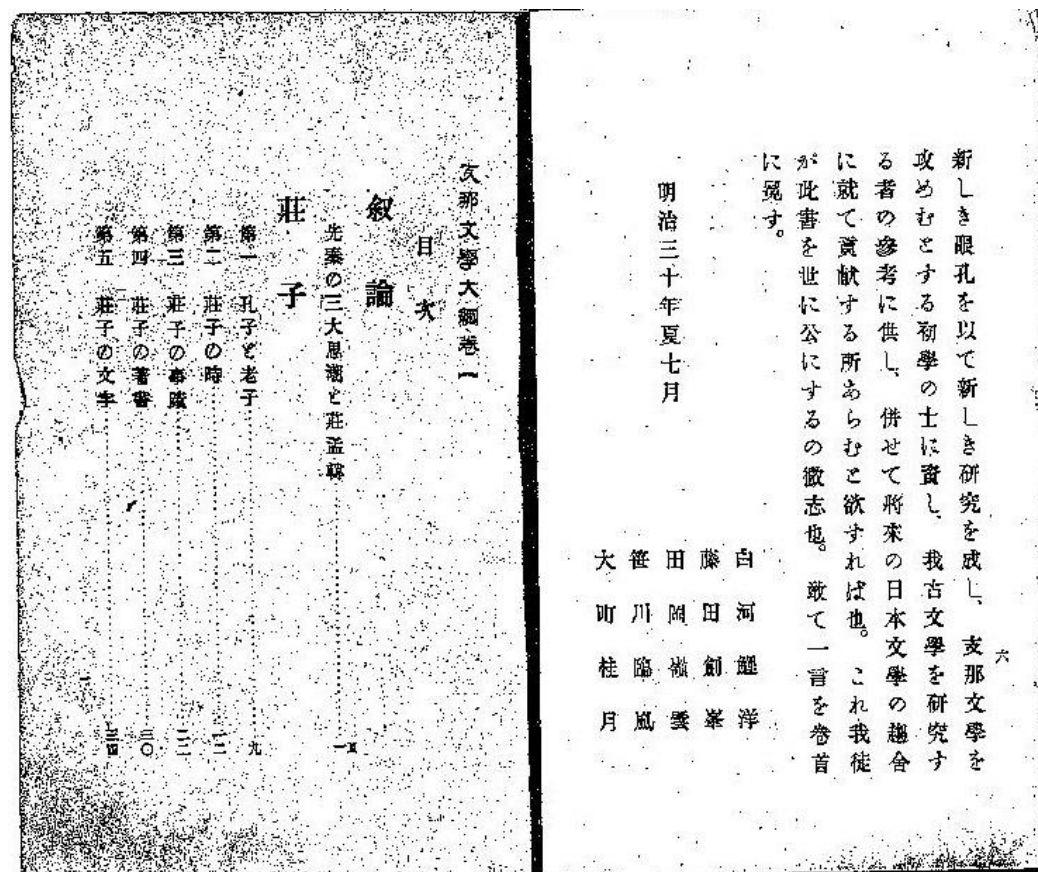 新しき眼孔を以て新しき研究を成し、支那文學を
攻めむとする初學の士に資し、我古文學を研究す
る者の參考に供し、併せて將來の日本文學の趨舍
に就て貢献する所あらむと欲すれば也。これ我徒
が此書を世に公にするの微志也。敢て一言を卷首
に冕す。
明治三十年夏七月
白河鯉洋
藤田劍峯
田岡嶺雲
笹川臨風
大町桂月
六
支那文學大綱卷一
目次
叙論
先秦の三大思潮と莊孟韓
一頁
莊子
第一 孔子と老子 九
第二 莊子の時 一二
第三 莊子の事蹟 二二
第四 莊子の著書 三〇
第五 莊子の文字 三四
一